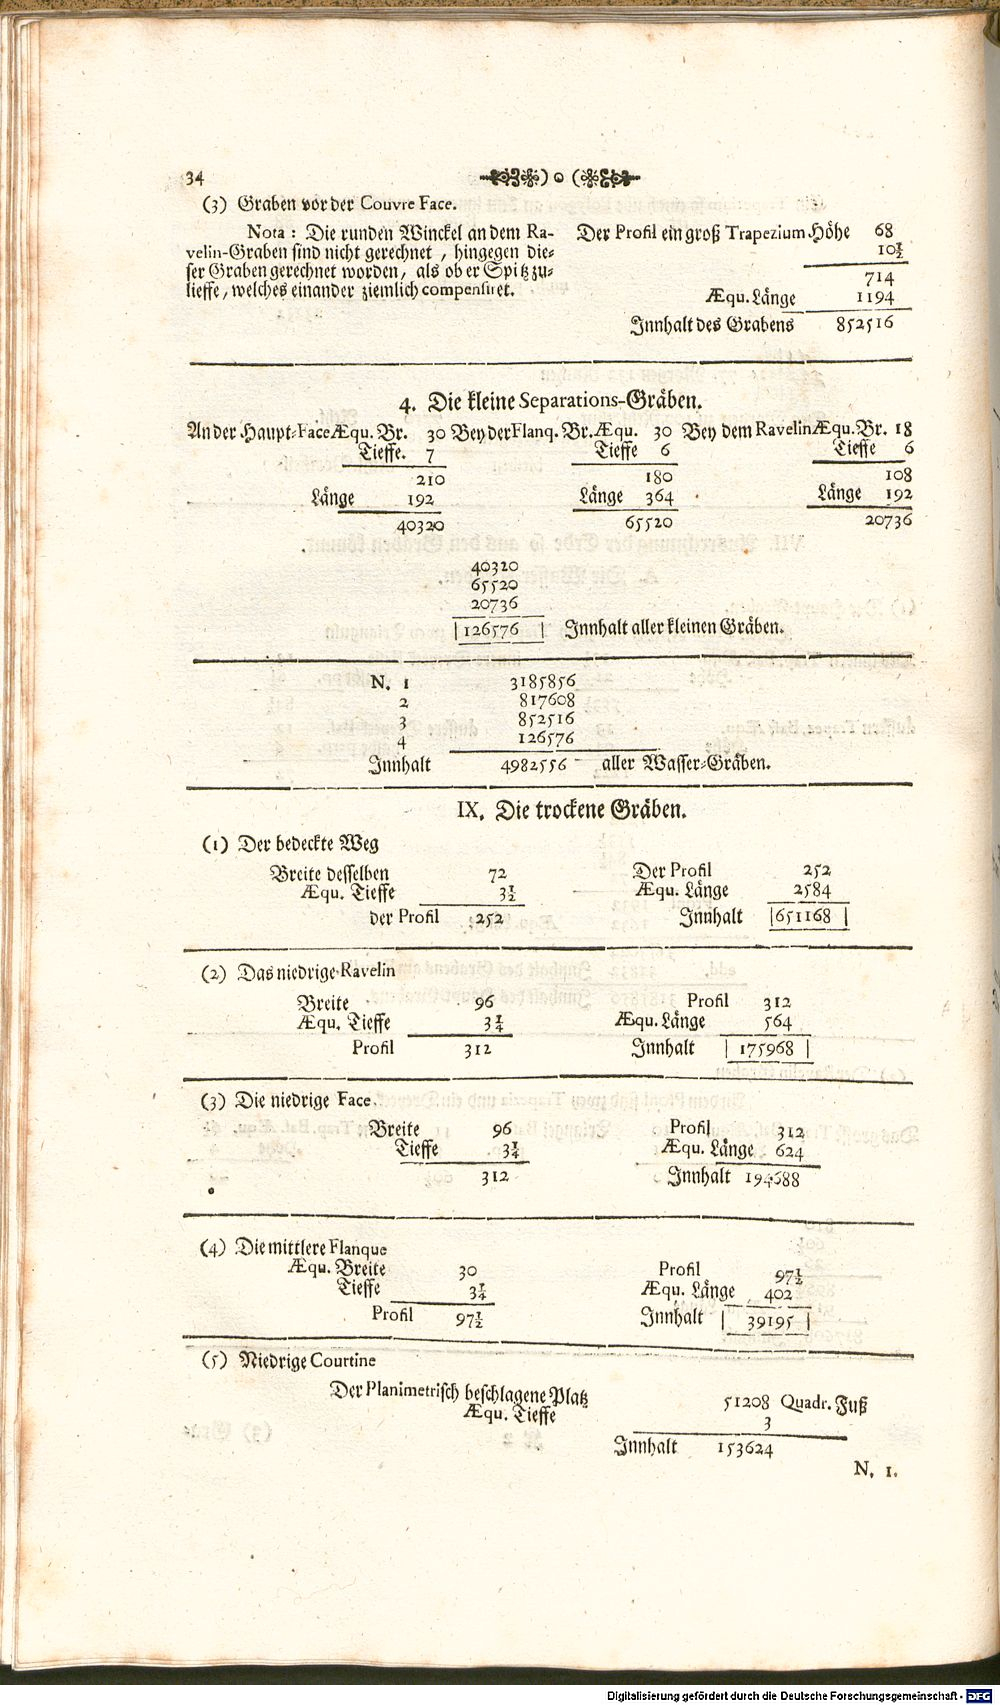 34 ) o (
(3) Graben vor der Couvre Face.
Nota: Die runden Winckel an dem Ra-
velin-Graben sind nicht gerechnet, hingegen die-
ser Graben gerechnet worden, als ob er Spitz zu-
lieffe, welches einander ziemlich compensiret.
Der Profil ein groß Trapezium Höhe 68
10½
714
Æqu. Länge 1194
Innhalt des Grabens 852516
4. Die kleine Separations-Gräben.
An der Haupt-Face Æqu. Br. 30 Bey der Flanq. Br. Æqu. 30 Bey dem Ravelin Æqu. Br. 18
Tieffe. 7 Tieffe 6 Tieffe 6
210 180 108
Länge 192 Länge 364 Länge 192
40320 65520 20736
40320
65520
20736
|126576| Innhalt aller kleinen Gräben.
N. 1 3185856
2 817608
3 852516
4 126576
Innhalt 4982556 aller Wasser-Gräben.
IX. Die trockene Gräben.
(1) Der bedeckte Weg
Breite desselben 72 Der Profil 252
Æqu. Tieffe 3½ Æqu. Länge 2584
der Profil 252 Innhalt |651168|
(2) Das niedrige Ravelin
Breite 96 Profil 312
Æqu. Tieffe 3¼ Æqu. Länge 564
Profil 312 Innhalt |175968|
(3) Die niedrige Face.
Breite 96 Profil 312
Tieffe 3¼ Æqu. Länge 624
312 Innhalt 194688
(4) Die mittlere Flanque
Æqu. Breite 30 Profil 97½
Tieffe 3¼ Æqu. Länge 402
Profil 97½ Innhalt |39195|
(5) Niedrige Courtine
Der Planimetrisch beschlagene Platz 51208 Quadr. Fuß
Æqu. Tieffe 3
Innhalt 153624
N. 1.
Digitalisierung gefördert durch die Deutsche Forschungsgemeinschaft - DFG